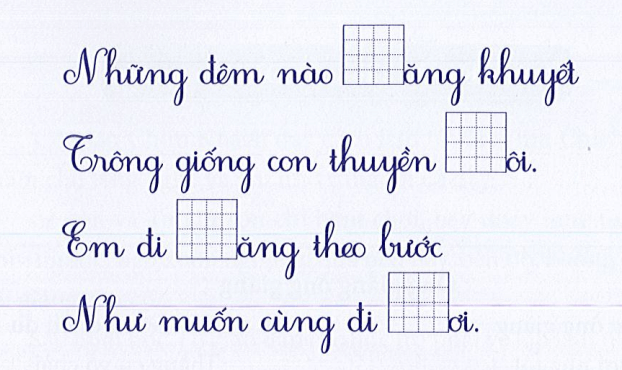 Những đêm nào ăng khuyết
Trông giống con thuyền ôi.
Em đi ăng theo bước
Như muốn cùng đi ơi.